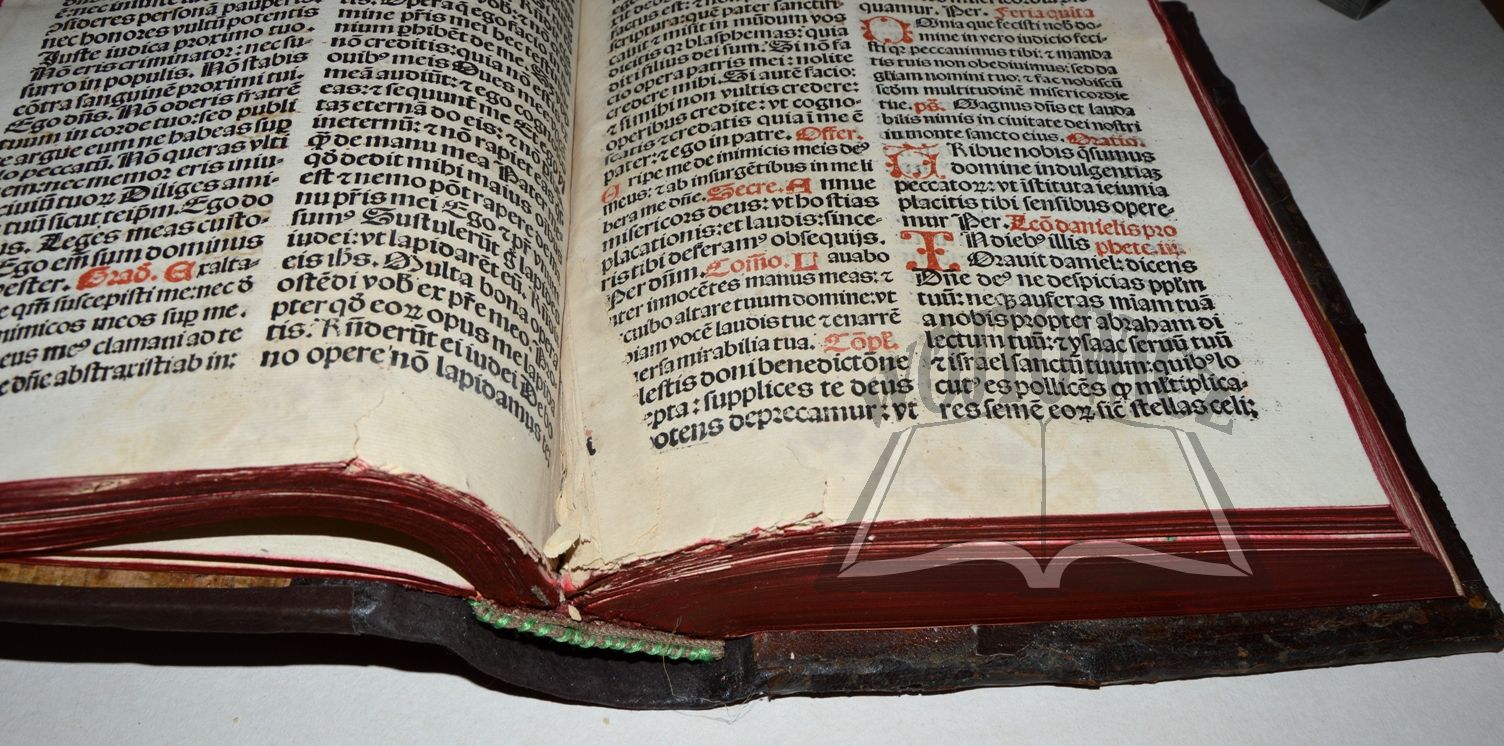 nec iniuste iu
sideres personã pauperis.
nec honores vultũ potentis
Juste iudica proximo tuo.
Nõ eris criminator: nec su-
surro in populis. Nõ stabis
cõtra sanguinẽ proximi tui.
Ego dñs. Nõ oderis fratrẽ
tuum in corde tuo: sed publi
argue eum ne habeas sup
lo peccatũ. Nõ queras vlti
nem: nec memor eris iniu-
ciuiũ tuoꝝ Diliges ami-
tuũ sicut teipm. Ego do
us. Leges meas custo-
Ego em̃ sum dominus
vester. Grad. Exalta-
qm̃ suscepisti me: nec
nimicos meos sup me.
eus meꝰ clamaui ad te
dñe abstraxisti ab in:
tis. Opera q̃ ego facio
mine pr̃is mei hec testi
nium phibẽt de me. Sed
nõ creditis: quia nõ estis
ouibꝰ meis Oues mee
meã audiũt: ⁊ ego cogno
eas: ⁊ sequunt̃ me Et ego
taz eternã do eis: ⁊ nõ pi
in eternũ: ⁊ nõ rapiet eas
q̃ de manu mea Pater
qd̃ dedit mihi maius oibꝰ
est ⁊ nemo põt rapere de
nu pr̃is mei Ego ⁊ pr̃ vnũ
sumꝰ Sustulerũt g̃ lapides
iudei: vt lapidarẽt eũ. Rñdit
eis ihs. Multa bona opera
ostẽdi vob̃ ex pr̃e meo. Prop
pter qd̃ eoꝝ opus me lapida
tis: Rñderũt ei iudei De bo
no opere nõ lapidamus te
factus est: ⁊ nõ
scriptura: quẽ pater sanctifi-
cauit ⁊ misit in mũdum vos
dicitis qꝛ blasphemas: quia
dixi filius dei sum. Si nõ fa
cio opera patris mei: nolite
credere mihi. Si autẽ facio:
⁊ si mihi non vultis credere:
operibus credite: vt cogno-
scatis ⁊ credatis quia ĩ me ẽ
pater: ⁊ ego in patre. Offer.
Eripe me de inimicis meis deꝰ
meus: ⁊ ab insurgẽtibus in me li
bera me dñe. Secre. Annue
misericors deus: vt hostias
placationis: et laudis: since-
ris tibi deferamꝰ obsequijs.
Per dñm. Cõmio. Lauabo
inter innocẽtes manus meas: ⁊
circuibo altare tuum domine: vt
audiam vocẽ laudis tue ⁊ enarrẽ
vniuersa mirabilia tua. Cõpl̃.
lestis doni benedictõne
cepta: supplices te deus
potens deprecamur: vt
quamur. Per. Feria quĩta
Omnia que fecisti nob̃ do-
mine in vero iudicio feci-
sti qꝛ peccauimus tibi: ⁊ manda
tis tuis non obediuimus: sed da
gl̃iam nomini tuo: ⁊ fac nobiscũ
scd̃m multitudinẽ misericordie
tue. pš. Magnus dñs et lauda
bilis nimis in ciuitate dei nostri
in monte sancto eius. Oratio.
TRibue nobis q̃sumus
domine indulgentiaz
peccatoꝝ: vt istituta ieiunia
placitis tibi sensibus opere-
mur Per. Lcõ danielis pro
IN diebꝰ illis phete. iij.
Orauit daniel: dicens
Dñe deꝰ ne despicias pplm
tuũ: neqꝫ auferas mĩam tuã
a nobis propter abraham di
lectum tuũ: ⁊ ysaac seruũ tuũ
⁊ israel sanctũ tuum: quibꝰ lo
cutꝰ es pollicẽs ꝙ mltiplica-
res semẽ eoꝝ sic̃ stellas celi: